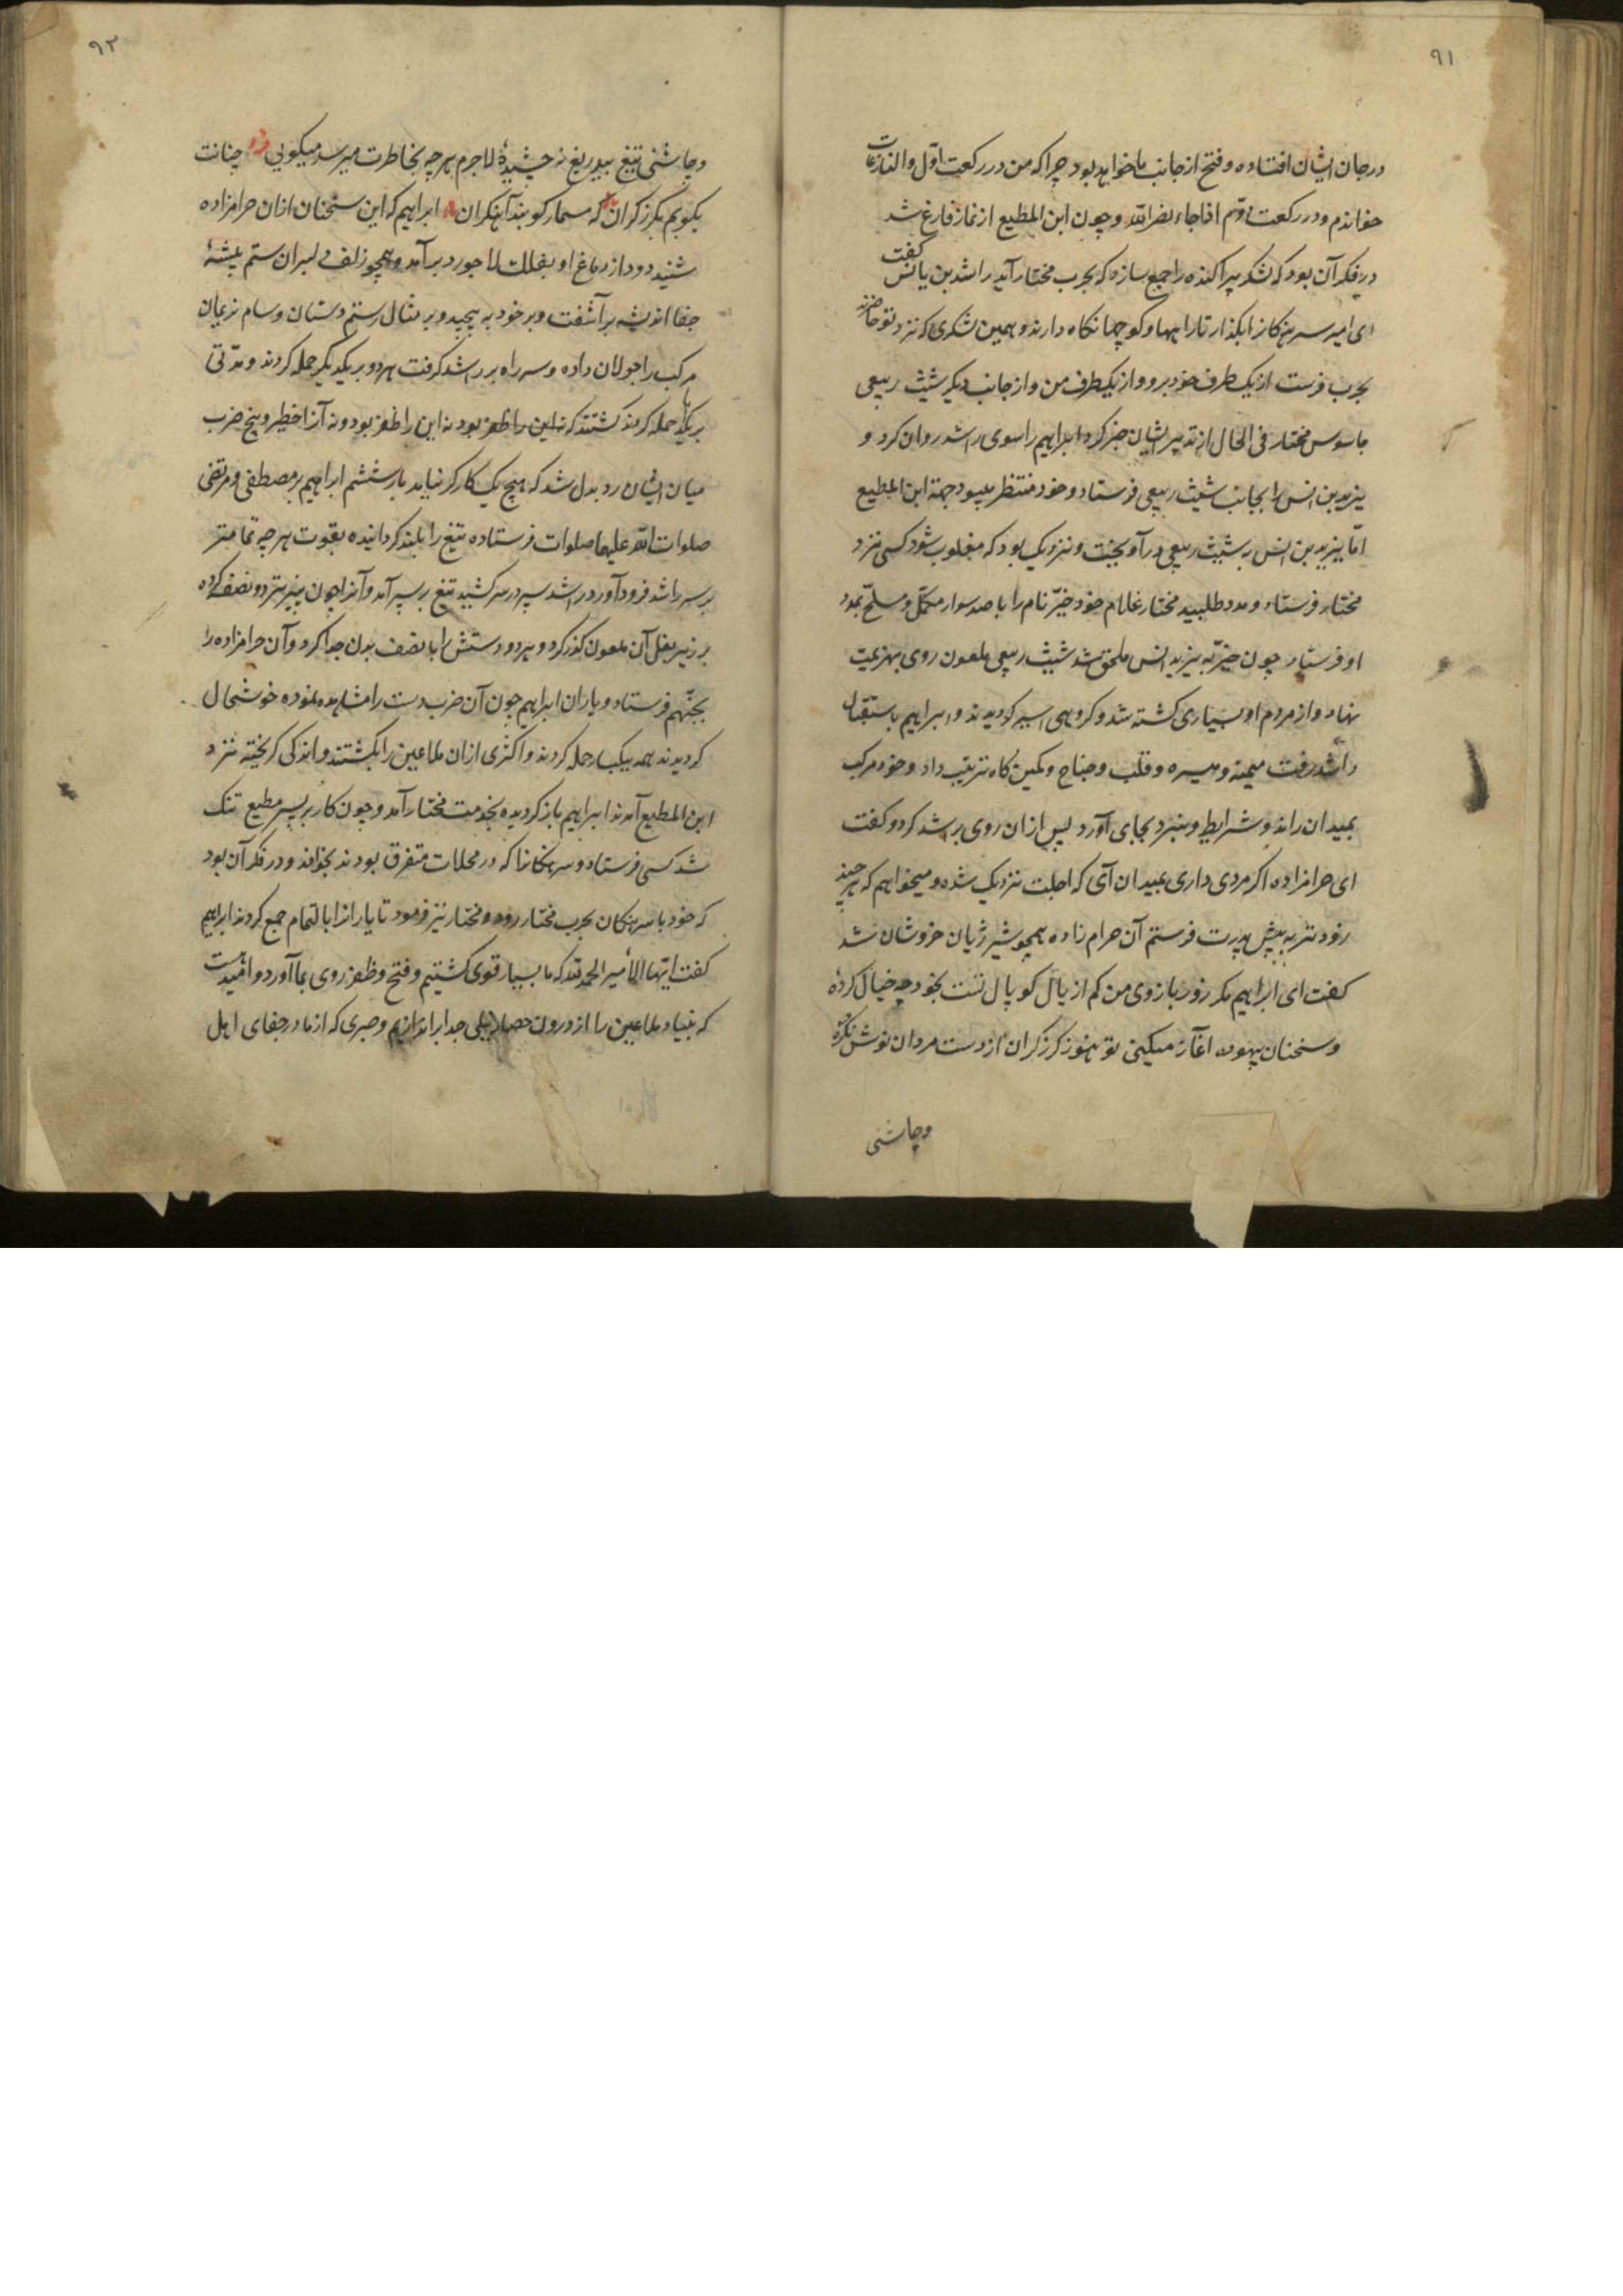 ۹۱
در جان ایشان افتاده و فتح از جانب ما خواهد بود چرا که من در رکعت اول والنازعات
خواندم و در رکعت دوّم اذا جاء نصر الله و چون ابن المطیع از نماز فارغ شد
در فکر آن بود که لشکر پراکنده را جمع سازد که بحرب مختار آید راشد بن یاس گفت
ای امیر سرهنکانرا بکذار تا راهها و کوچها نکاه دارند و همین لشکری که نزد تو حاضرند
بحرب فرست از یک طرف خود برو و از یکطرف من و از جانب دیکر شیث ربیعی
جاسوس مختار فی الحال از تدبیر ایشان خبر کرد ابراهیم را سوی راشد روان کرد و
یزید بن انس را بجانب شیث ربیعی فرستاد و خود منتظر میبود جهة ابن المطیع
امّا یزید بن انس به شیث ربیعی درآویخت و نزدیک بود که مغلوب شود کسی نزد
مختار فرستاد و مدد طلبید مختار غلام خود خیّر نام را با صد سوار مکمّل و مسلح بمدد
او فرستاد چون خیّر به یزید انس ملحق شد شیث ربیعی ملعون روی بهزیمت
نهاد و از مردم او بسیاری کشته شد و کروهی اسیر کردیدند و ابراهیم باستقبال
راشد رفت میمنه و میسره و قلب و جناح و کمین کاه ترتیب داد و خود مرکب
بمیدان راند و شرایط و نبرد بجای آورد پس ازان روی براشد کرد و کفت
ای حرامزاده اکر مردی داری بمیدان آی که اجلت نزدیک شده و میخواهم که هر چند
زودتر به پیش پدرت فرستم آن حرام زاده همچو شیر ژیان خروشان شد
کفت ای ابراهیم مکر زور بازوی من کم از یال کوپال تست بخود چه خیال کردهٔ
و سخنان بیهوده آغاز میکنی تو هنوز کرز کران از دست مردان نوش نکردهٔ
وچاشنی
۹۲
و چاشنی تیغ بیدریغ نه چشیدهٔ لاجرم هر چه بخاطرت میرسد میکویی چنانت
بکوبم بکرز کران که مسمار کوبند آهنکران ابراهیم که این سخنان ازان حرامزاده
شنید دود از دماغ او بفلک لاجورد برآمد و همچو زلف دلبران ستم پیشهٔ
جفا اندیشه برآشفت و بر خود به پیچید و بر مثال رستم دستان و سام نریمان
مرکب را جولان داده و سر راه بر راشد کرفت هر دو بر یکدیکر حمله کردند و مدّتی
بر یکدیکر حمله کردند کشتند که نه این را ظفر بود نه این را ظفر بود و نه آنرا خطر و پنج ضرب
میان ایشان رد بدل شد که هیچ یک کارکر نیامد بار ششم ابراهیم بر مصطفی و مرتضی
صلوات الله علیهما صلوات فرستاده تیغ را بلند کردانیده بقوت هر چه تمامتر
بر سر راشد فرود آورد راشد سپر در سر کشید تیغ بر سپر آمد و آنرا چون پنیر تر دو نصف کرده
بر زیر بغل آن ملعون کذر کرد و هر دو دستش را با نصف بدن جدا کرد و آن حرامزاده را
بجهنّم فرستاد و یاران ابراهیم چون آن ضرب دست را مشاهده نموده خوشحال
کردیدند همه بیکبار حمله کردند و اکثری ازان ملاعین را بکشتند و اندکی کریخته نزد
ابن المطیع آمدند ابراهیم باز کردیده بخدمت مختار آمد و چون کار بر پسر مطیع تنک
شد کسی فرستاد و سرهنکانرا که در محلات متفرق بودند بخواند و در فکر آن بود
که خود با سرهنکان بحرب مختار رود و مختار نیز فرمود تا یارانرا بالتمام جمع کردند ابراهیم
کفت ایّها الأمیر الحمد لله که ما بسیار قوی کشتیم و فتح و ظفر روی بما آورد و امّیدست
که بنیاد ملاعین را از درون حصار براندازیم و صبری که از ما در جفای اهل